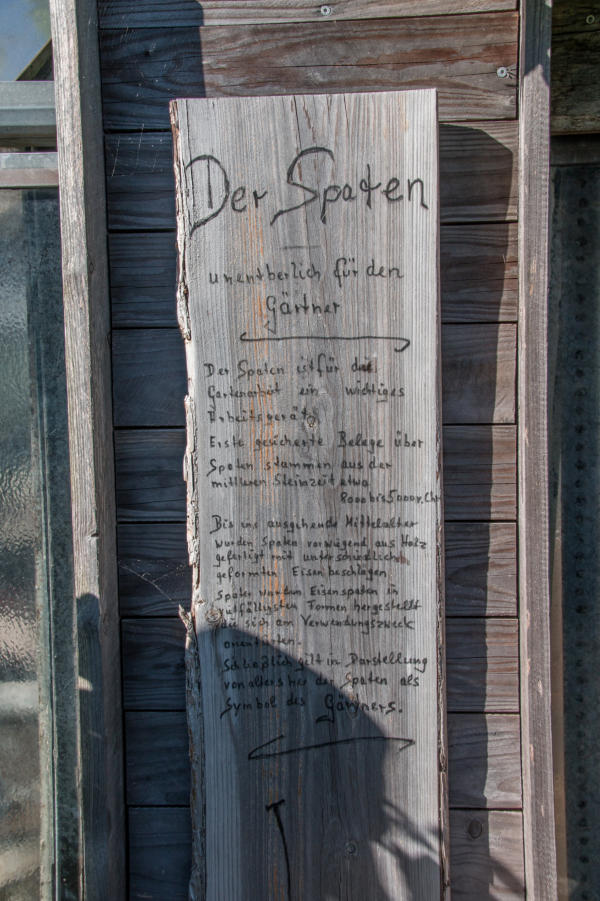 Der Spaten
unentberlich für den
Gärtner
Der Spaten ist für die
Gartenarbeit ein wichtiges
Arbeitsgerät
Erste gesicherte Belege über
Spaten stammen aus der
mittleren Steinzeit etwa
8000 bis 5000 v. Chr
Bis ins ausgehende Mittelalter
wurden Spaten vorwiegend aus Holz
gefertigt mit unterschiedlich
geformten Eisenbeschlägen
Später wurden Eisenspaten in
vielfältigsten Formen hergestellt
die sich am Verwendungszweck
orientierten.
Schließlich gilt in Darstellung
von alters her der Spaten als
Symbol des Gärtners.